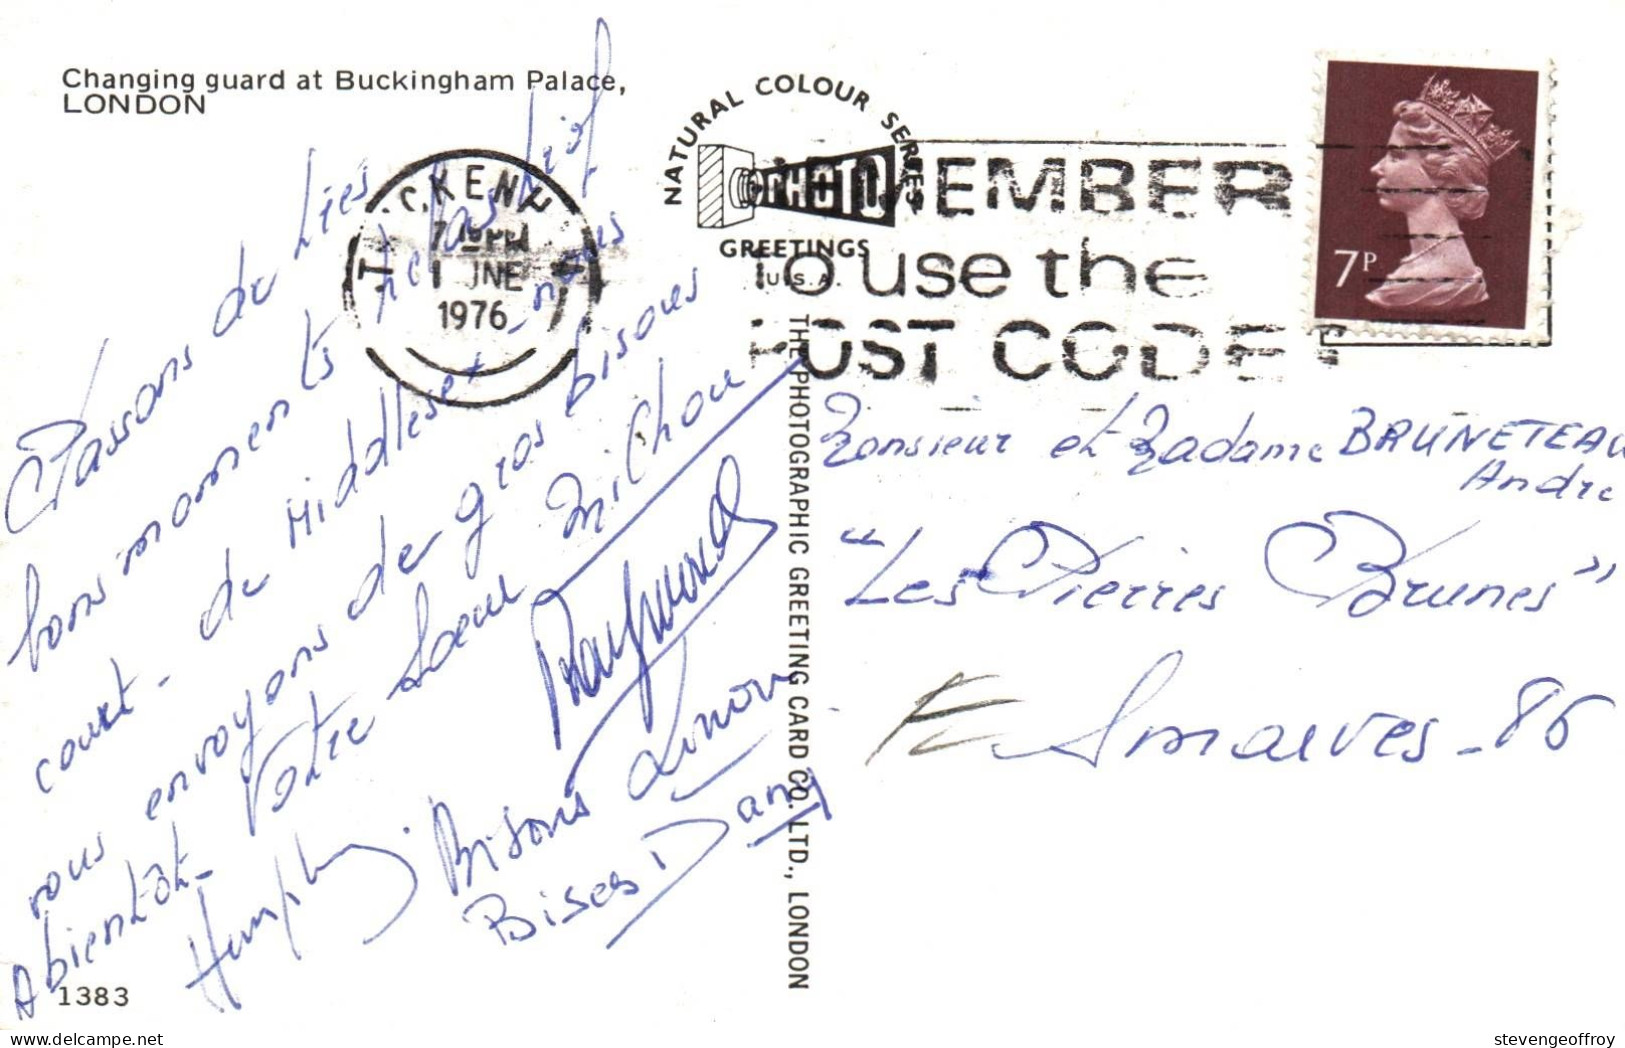 Changing guard at Buckingham Palace,
LONDON
Passons de très
bons moments hélas trop
court - de Middlesex - nous
vous envoyons de gros bisous
Abientôt - Votre Soeur Michou
Raymond
Humphry Bisous
Bises Dany
1383
NATURAL COLOUR SERIES
PHOTO
GREETINGS
U.S.A.
THE PHOTOGRAPHIC GREETING CARD CO. LTD., LONDON
1976
EMBER
to use the
POST CODE
7P
Monsieur et Madame BRUNETEAU
André
"Les Pierres Brunes"
Smarves - 86
stevengeoffroy